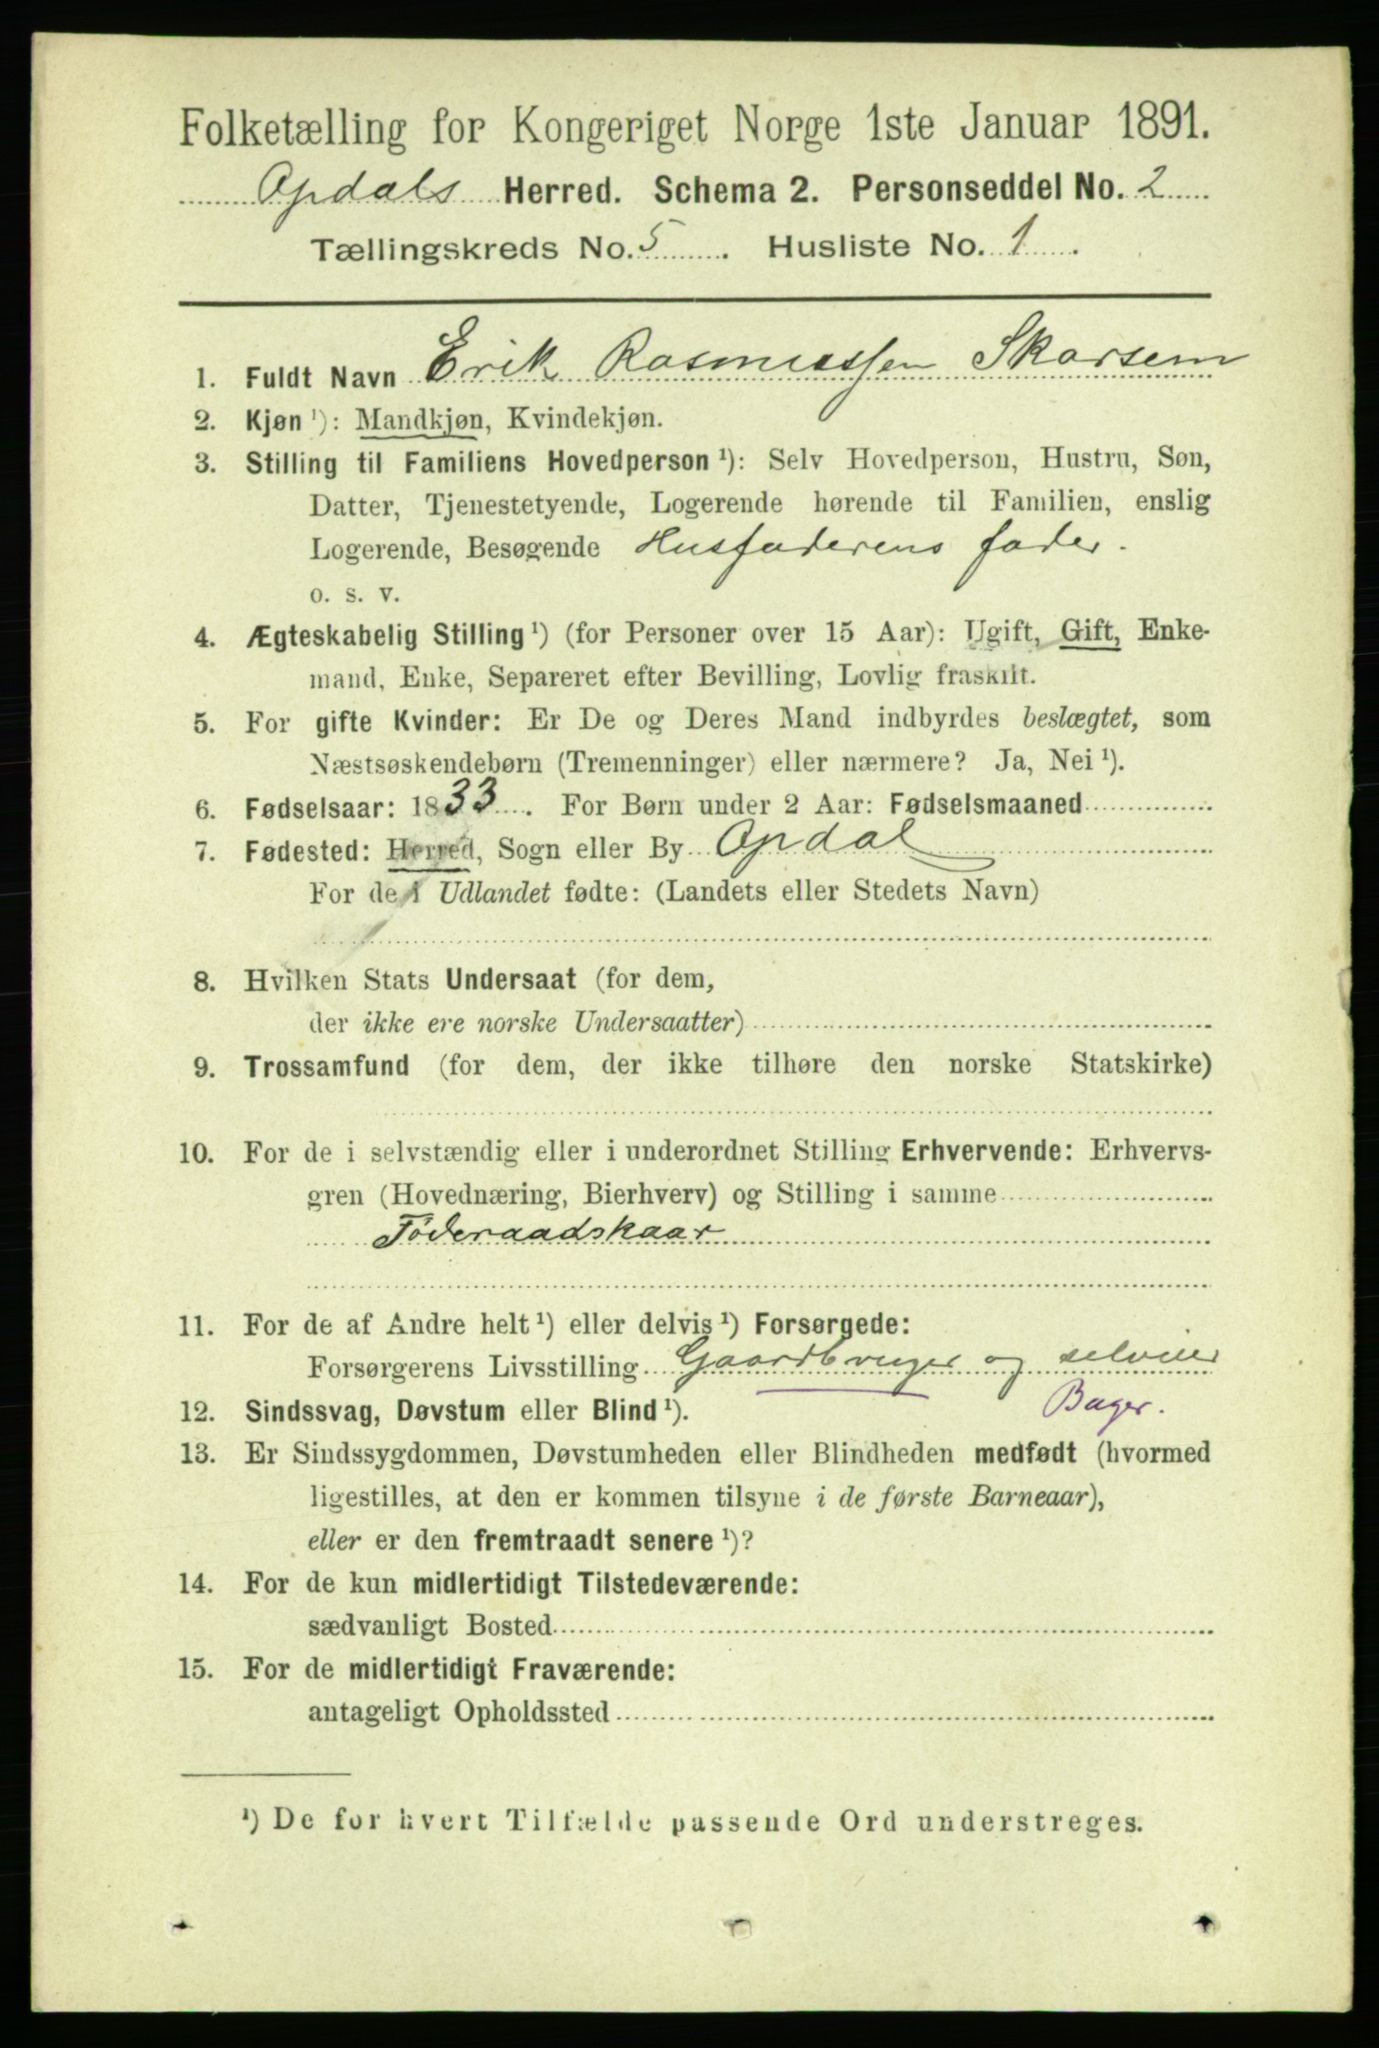 Folketælling for Kongeriget Norge 1ste Januar 1891.
Opdals Herred. Schema 2. Personseddel No. 2
Tællingskreds No. 5. Husliste No. 1.
1. Fuldt Navn Erik Rasmussen Skarsem
2. Kjøn ¹): Mandkjøn, Kvindekjøn.
3. Stilling til Familiens Hovedperson ¹): Selv Hovedperson, Hustru, Søn,
Datter, Tjenestetyende, Logerende hørende til Familien, enslig
Logerende, Besøgende Husfaderens fader.
o. s. v.
4. Ægteskabelig Stilling ¹) (for Personer over 15 Aar): Ugift, Gift, Enke-
mand, Enke, Separeret efter Bevilling, Lovlig fraskilt.
5. For gifte Kvinder: Er De og Deres Mand indbyrdes beslægtet, som
Næstsøskendebørn (Tremenninger) eller nærmere? Ja, Nei ¹).
6. Fødselsaar: 1833. For Børn under 2 Aar: Fødselsmaaned
7. Fødested: Herred, Sogn eller By Opdal
For de i Udlandet fødte: (Landets eller Stedets Navn)
8. Hvilken Stats Undersaat (for dem,
der ikke ere norske Undersaatter)
9. Trossamfund (for dem, der ikke tilhøre den norske Statskirke)
10. For de i selvstændig eller i underordnet Stilling Erhvervende: Erhvervs-
gren (Hovednæring, Bierhverv) og Stilling i samme
Föderaadskaar
11. For de af Andre helt ¹) eller delvis ¹) Forsørgede:
Forsørgerens Livsstilling Gaardbruger og selveier
12. Sindssvag, Døvstum eller Blind ¹). Bager.
13. Er Sindssygdommen, Døvstumheden eller Blindheden medfødt (hvormed
ligestilles, at den er kommen tilsyne i de første Barneaar),
eller er den fremtraadt senere ¹)?
14. For de kun midlertidigt Tilstedeværende:
sædvanligt Bosted
15. For de midlertidigt Fraværende:
antageligt Opholdssted
¹) De for hvert Tilfælde passende Ord understreges.